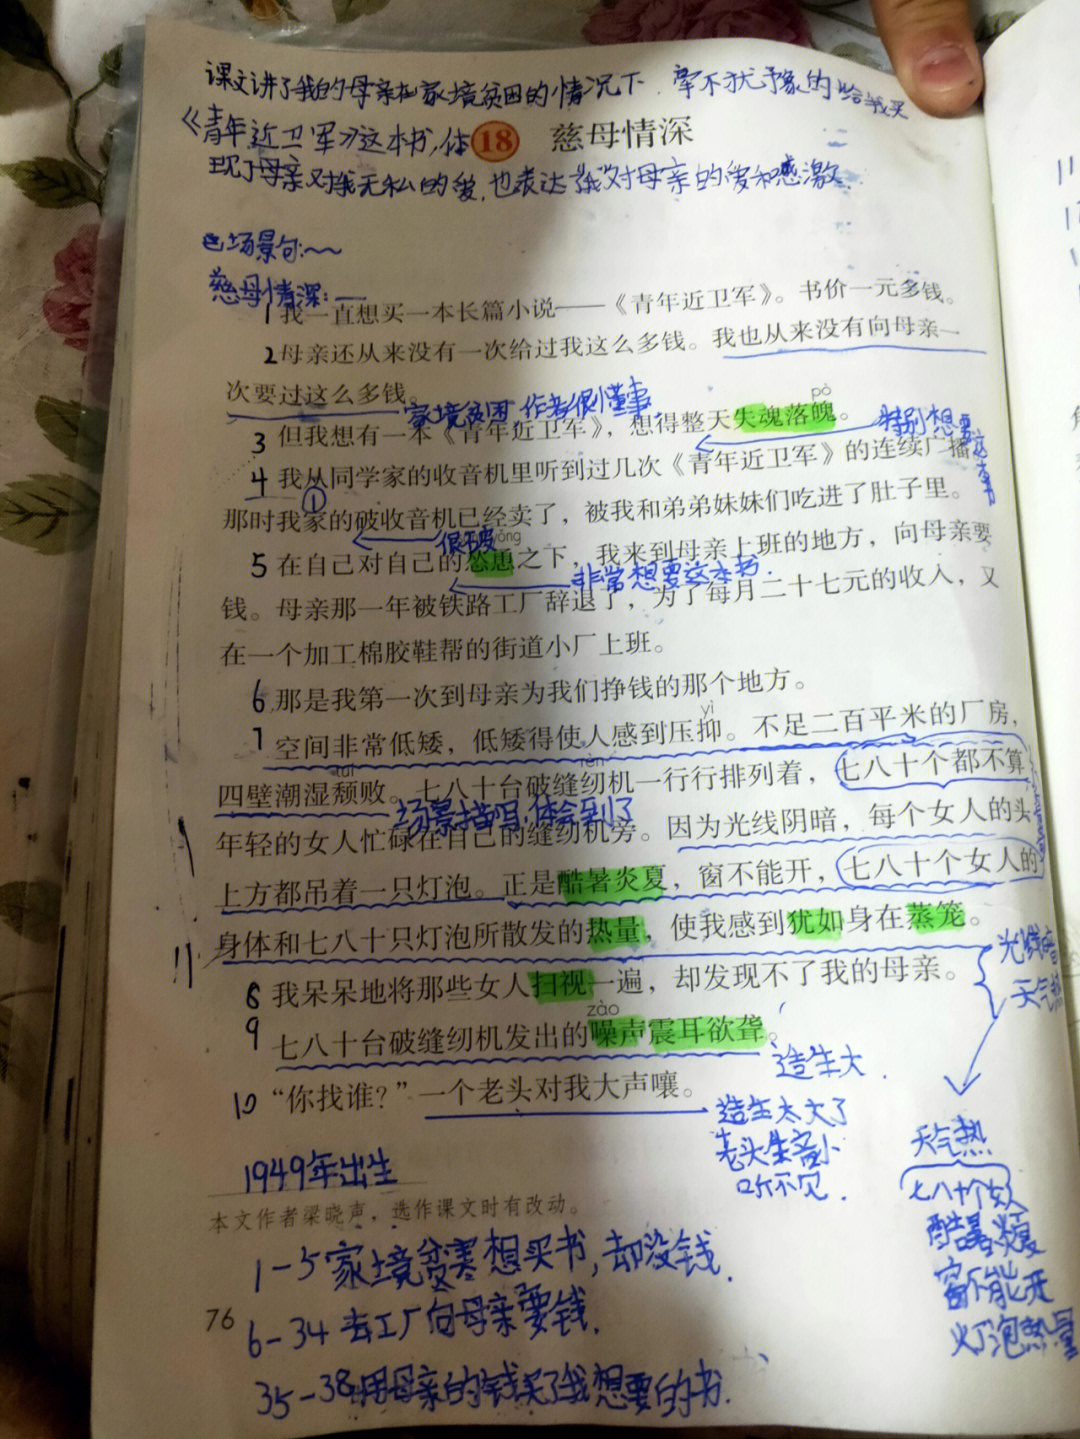 课文讲了我的母亲在家境贫困的情况下，牵不犹予象的给我买
《青年近卫军》这本书，体
18 慈母情深
现了母亲对我无私的爱，也表达了我对母亲的爱和感激。
场景句：～
慈母情深：—
1 我一直想买一本长篇小说——《青年近卫军》。书价一元多钱。
2 母亲还从来没有一次给过我这么多钱。我也从来没有向母亲一
次要过这么多钱。
家境贫困 作者很懂事
pò
3 但我想有一本《青年近卫军》，想得整天失魂落魄。
特别想要这本书
4 我从同学家的收音机里听到过几次《青年近卫军》的连续广播。
①
那时我家的破收音机已经卖了，被我和弟弟妹妹们吃进了肚子里。
很破
yǒng
5 在自己对自己的怂恿之下，我来到母亲上班的地方，向母亲要
非常想要这本书.
钱。母亲那一年被铁路工厂辞退了，为了每月二十七元的收入，又
在一个加工棉胶鞋帮的街道小厂上班。
6 那是我第一次到母亲为我们挣钱的那个地方。
yì
7 空间非常低矮，低矮得使人感到压抑。不足二百平米的厂房，
tuí
rèn
四壁潮湿颓败。七八十台破缝纫机一行行排列着，七八十个都不算
场景描写，体会到了
年轻的女人忙碌在自己的缝纫机旁。因为光线阴暗，每个女人的头
上方都吊着一只灯泡。正是酷暑炎夏，窗不能开，七八十个女人的
身体和七八十只灯泡所散发的热量，使我感到犹如身在蒸笼。
光线暗
天气热
8 我呆呆地将那些女人扫视一遍，却发现不了我的母亲。
zào
9 七八十台破缝纫机发出的噪声震耳欲聋。
造生大.
10 “你找谁？”一个老头对我大声嚷。
造生太大了
老头生音小
听不见.
天气热
七八十个女人
酷暑炎夏
窗不能开
灯泡热量
1949年出生
本文作者梁晓声，选作课文时有改动。
1-5 家境贫寒想买书，却没钱.
76
6-34 去工厂向母亲要钱.
35-38 用母亲的钱买了我想要的书.